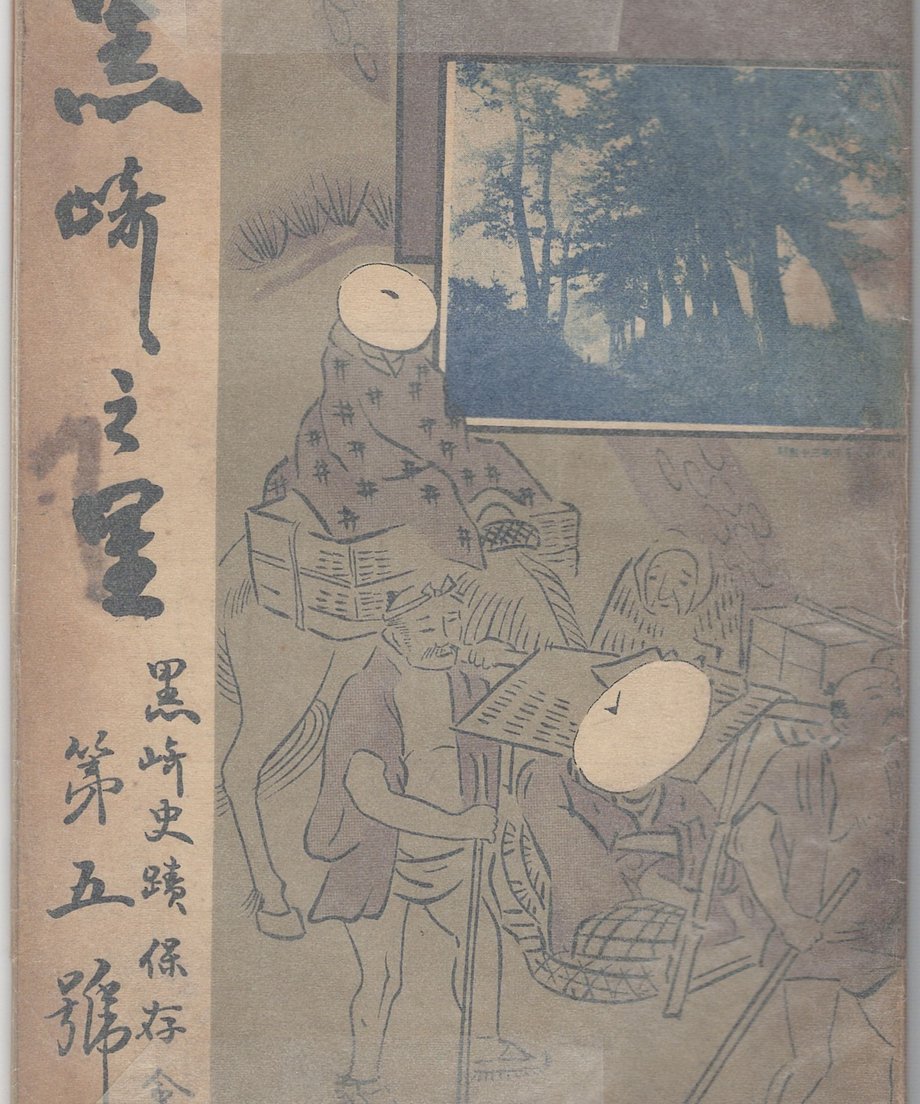 黒崎之里
黒崎史蹟保存会
第五號